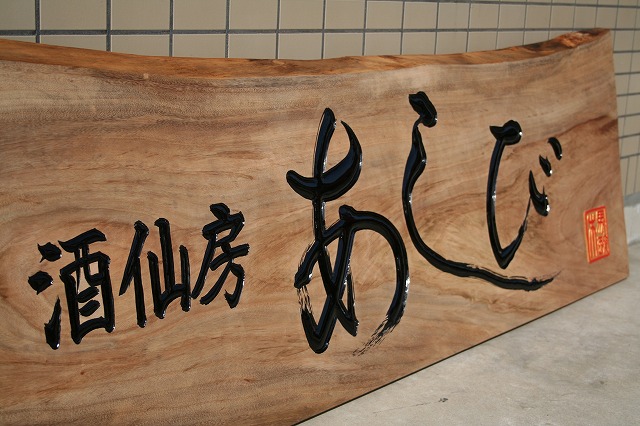 酒仙房 あじ